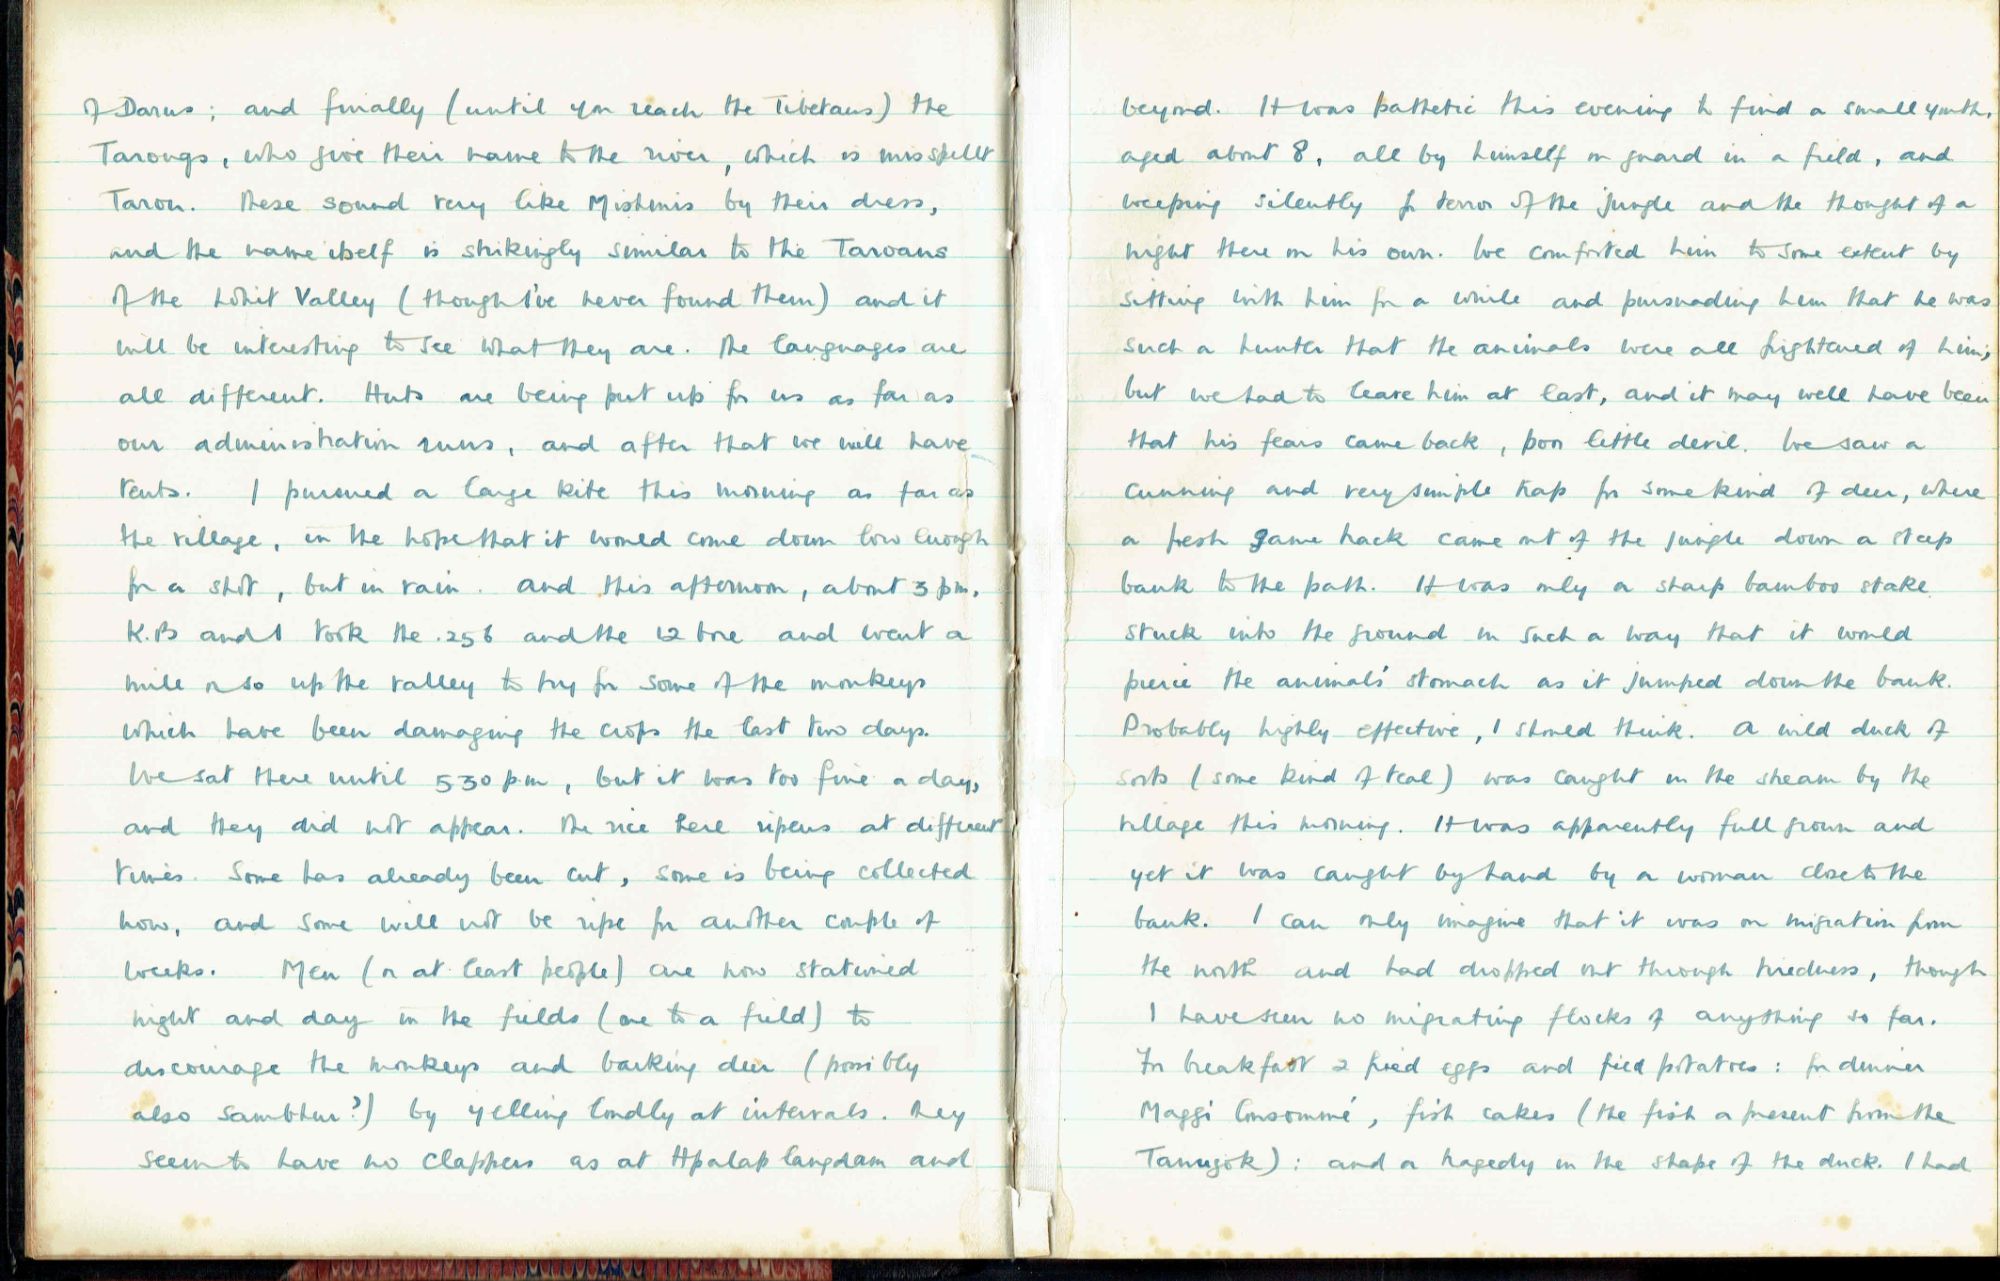 of Darus; and finally (until you reach the Tibetans) the
Tarongs, who give their name to the river, which is misspellt
Taron. These sound very like Mishmis by their dress,
and the name itself is strikingly similar to the Taroans
of the Lohit Valley (though I've never found them) and it
will be interesting to see what they are. The languages are
all different. Huts are being put up for us as far as
our administration runs, and after that we will have
tents. I pursued a large kite this morning as far as
the village, in the hope that it would come down low enough
for a shot, but in vain. And this afternoon, about 3 pm,
K.B and I took the .256 and the 12 bore and went a
mile or so up the valley to try for some of the monkeys
which have been damaging the crops the last two days.
We sat there until 530 pm, but it was too fine a day,
and they did not appear. The rice here ripens at different
times. Some has already been cut, some is being collected
now, and some will not be ripe for another couple of
weeks. Men (or at least people) are now stationed
night and day in the fields (one to a field) to
discourage the monkeys and barking deer (possibly
also sambhur?) by yelling loudly at intervals. They
seem to have no clappers as at Hpalaplangdam and
beyond. It was pathetic this evening to find a small youth,
aged about 8, all by himself on guard in a field, and
weeping silently for terror of the jungle and the thought of a
night there on his own. We comforted him to some extent by
sitting with him for a while and pursuading him that he was
such a hunter that the animals were all frightened of him;
but we had to leave him at last, and it may well have been
that his fears came back, poor little devil. We saw a
cunning and very simple trap for some kind of deer, where
a fresh game track came out of the jungle down a steep
bank to the path. It was only a sharp bamboo stake
stuck into the ground in such a way that it would
pierce the animals' stomach as it jumped down the bank.
Probably highly effective, I should think. A wild duck of
sorts (some kind of teal) was caught in the stream by the
village this morning. It was apparently full grown and
yet it was caught by hand by a woman close to the
bank. I can only imagine that it was on migration from
the north and had dropped out through tiredness, though
I have seen no migrating flocks of anything so far.
For breakfast 2 fried eggs and fried potatoes: for dinner
Maggi Consommé, fish cakes (the fish a present from the
Tamugok): and a tragedy in the shape of the duck. I had